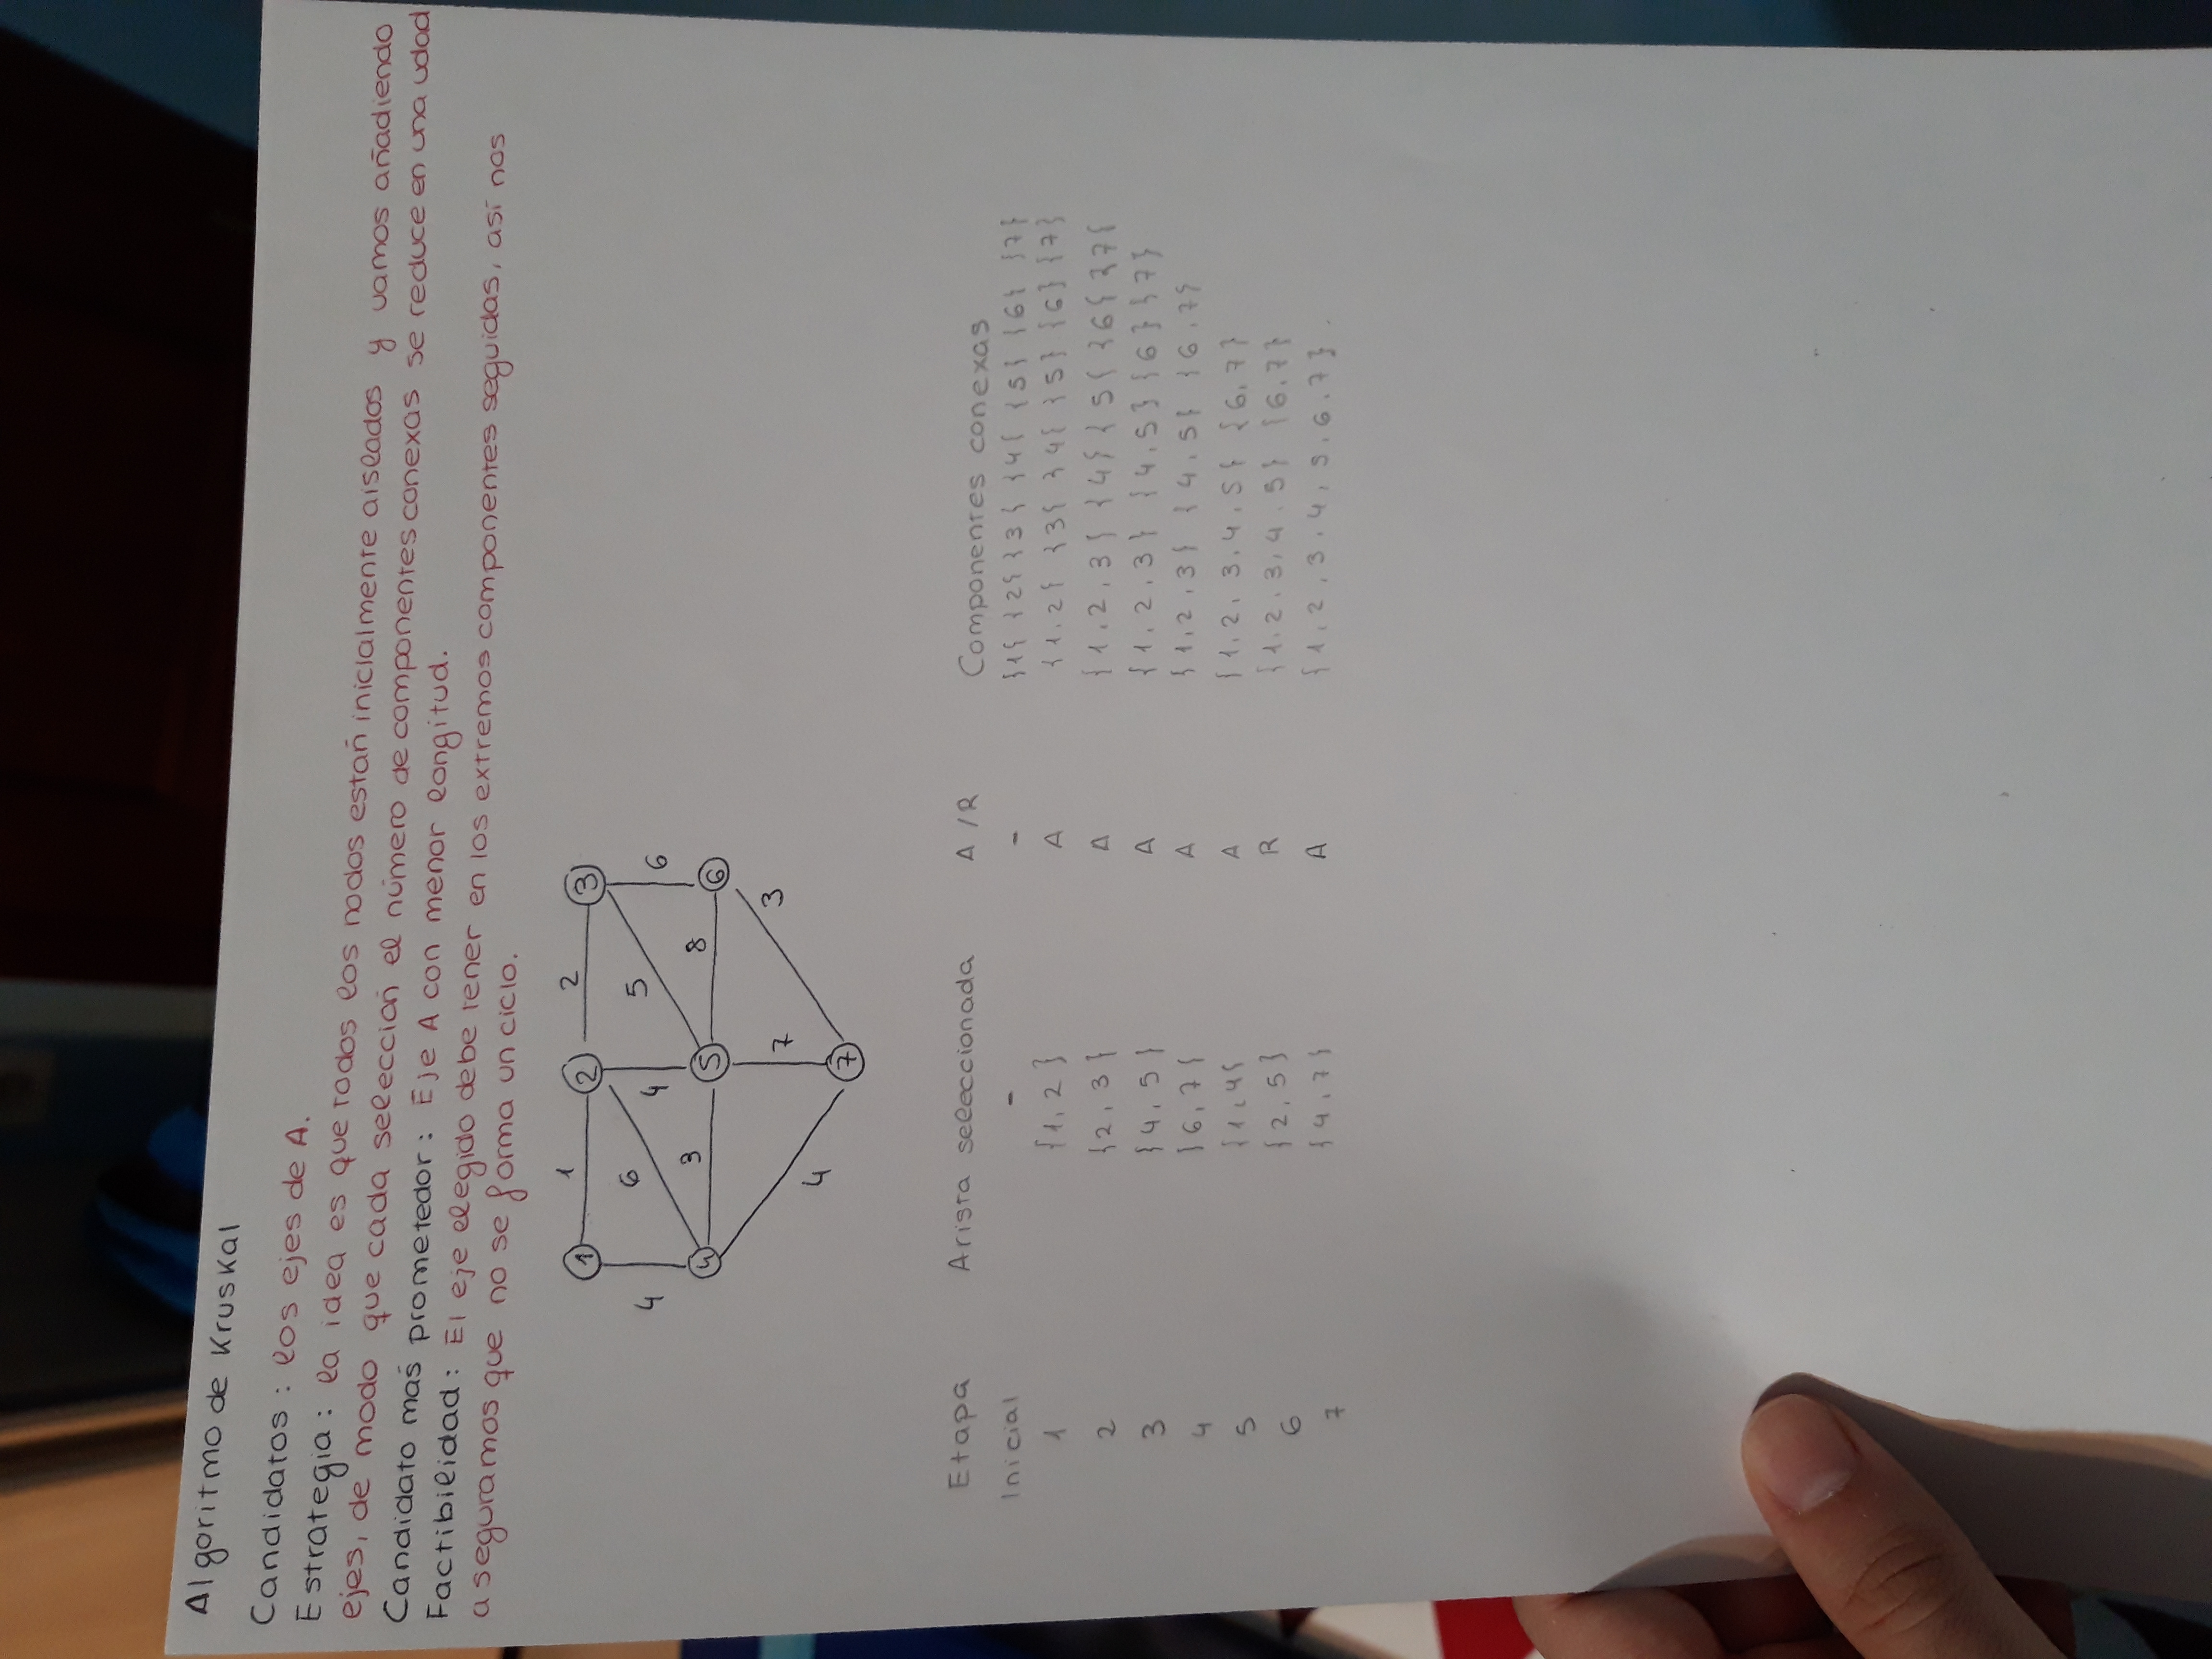 Algoritmo de Kruskal
Candidatos: los ejes de A.
Estrategia: la idea es que todos los nodos están inicialmente aislados y vamos añadiendo
ejes, de modo que cada selección el número de componentes conexas se reduce en una udad
Candidato más prometedor: Eje A con menor longitud.
Factibilidad: El eje elegido debe tener en los extremos componentes seguidas, así nos
aseguramos que no se forma un ciclo.
1 2
1 2 3
4 6 4 5 6
3 8
4 5 6
7 3
4
7
Etapa Arista seleccionada A/R Componentes conexas
Inicial - - {1} {2} {3} {4} {5} {6} {7}
1 {1,2} A {1,2} {3} {4} {5} {6} {7}
2 {2,3} A {1,2,3} {4} {5} {6} {7}
3 {4,5} A {1,2,3} {4,5} {6} {7}
4 {6,7} A {1,2,3} {4,5} {6,7}
5 {1,4} A {1,2,3,4,5} {6,7}
6 {2,5} R {1,2,3,4,5} {6,7}
7 {4,7} A {1,2,3,4,5,6,7}.